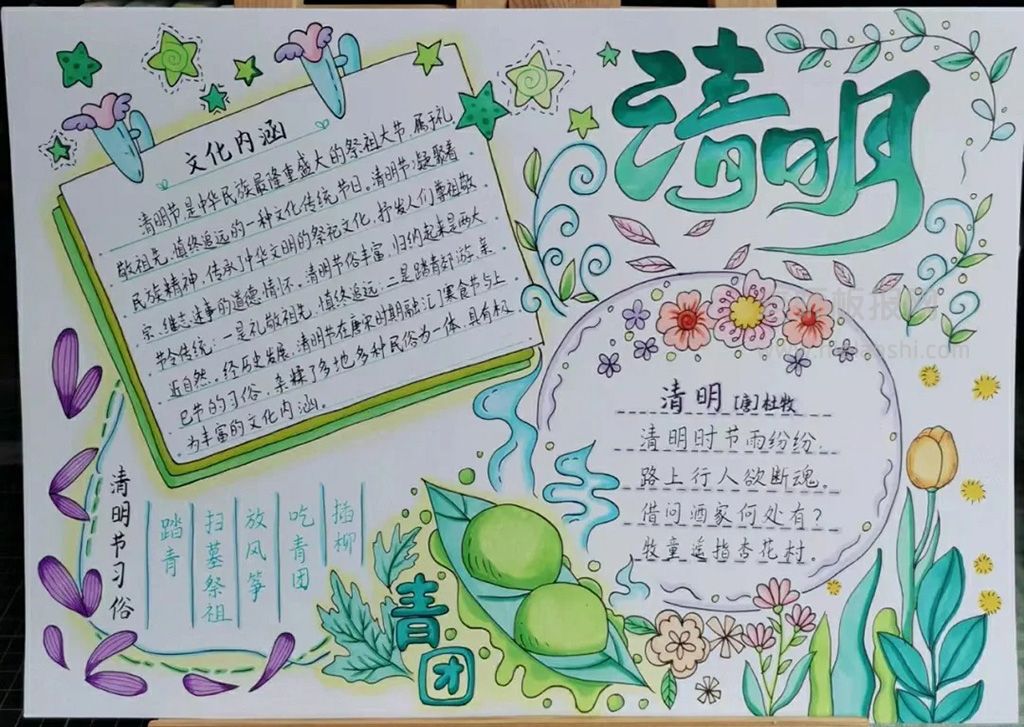 清明
文化内涵
清明节是中华民族最隆重盛大的祭祖大节,属于礼
敬祖先、慎终追远的一种文化传统节日。清明节凝聚着
民族精神,传承了中华文明的祭祀文化,抒发人们尊祖敬
宗、继志述事的道德情怀。清明节俗丰富,归纳起来是两大
节令传统:一是礼敬祖先,慎终追远;二是踏青郊游、亲
近自然。经历史发展,清明节在唐宋时期融汇了寒食节与上
巳节的习俗,杂糅了多地多种民俗为一体,具有极
为丰富的文化内涵。
清明 [唐]杜牧
清明时节雨纷纷,
路上行人欲断魂。
借问酒家何处有?
牧童遥指杏花村。
清明节习俗
踏青
扫墓祭祖
放风筝
吃青团
插柳
青团